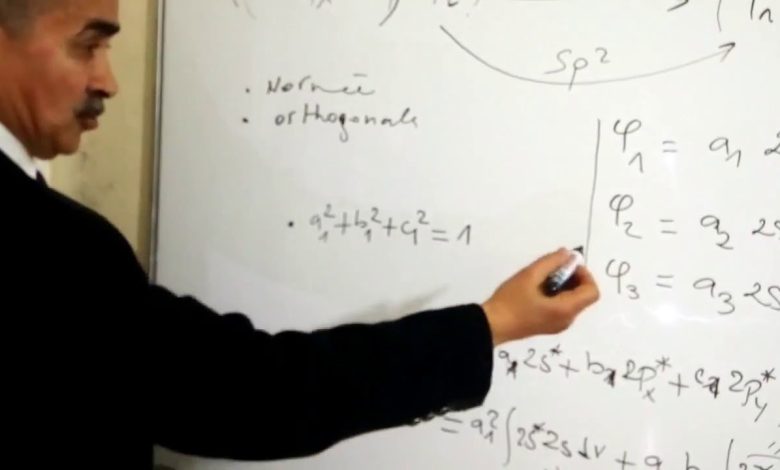 Sp²
• Normée
• orthogonale
φ₁ = a₁ 2
φ₂ = a₂ 2s
• a₁²+b₁²+c₁² = 1
φ₃ = a₃ 2s
a₁ 2s* + b₁ 2pₓ* + c₁ 2p_y*
= a₁² ∫ 2s* 2s dv + a₁ b₁